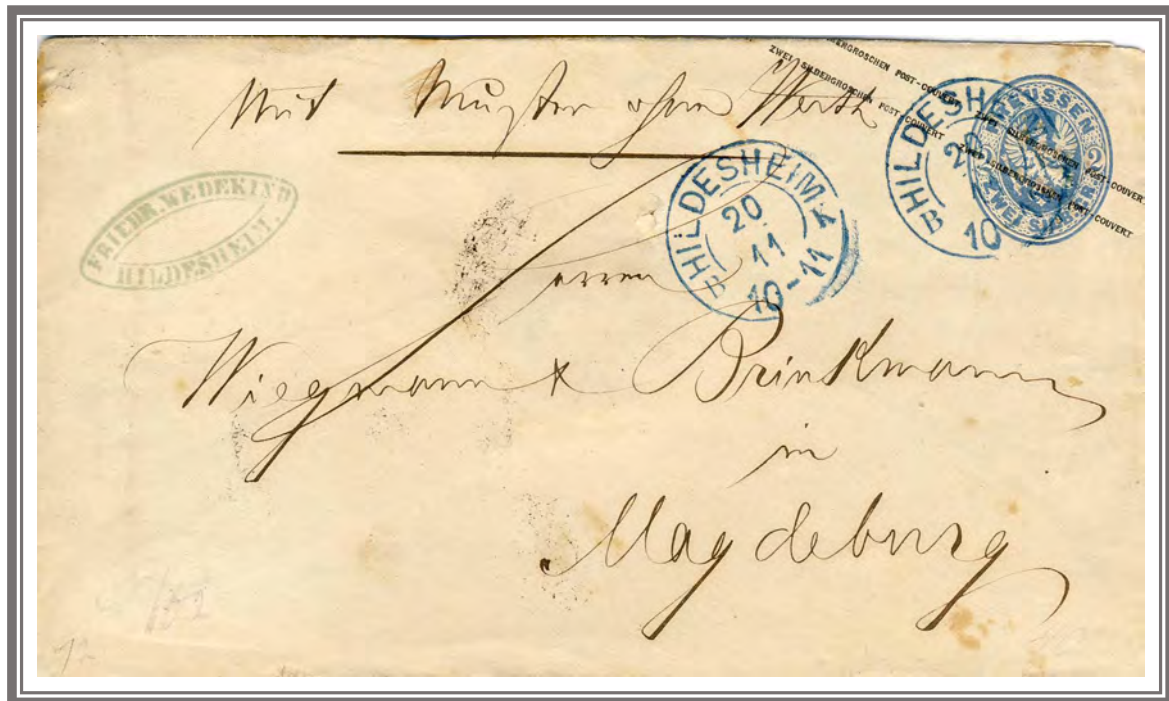 Mit Muster ohne Werth
ZWEI SILBERGROSCHEN POST-COUVERT
ZWEI SILBERGROSCHEN POST-COUVERT
ZWEI SILBERGROSCHEN POST-COUVERT
PREUSSEN
2
ZWEI SILBERGR.
HILDESHEIM
20
10
B
HILDESHEIM
20
11
10-11
B
FRIEDR. WEDEKIND
HILDESHEIM.
Herren
Wiegmann & Brinkmann
in
Magdeburg